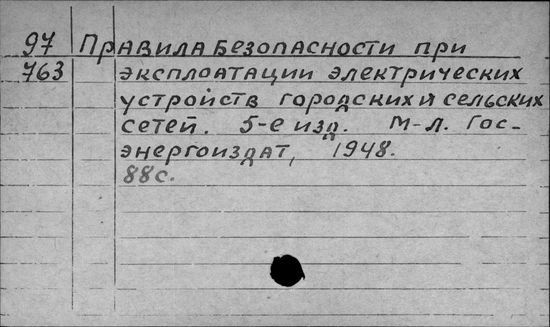 97 Правила безопасности при
763 эксплоатации электрических
устройств городских и сельских
сетей. 5-е изд. М-Л. Гос-
энергоиздат, 1948.
88с.